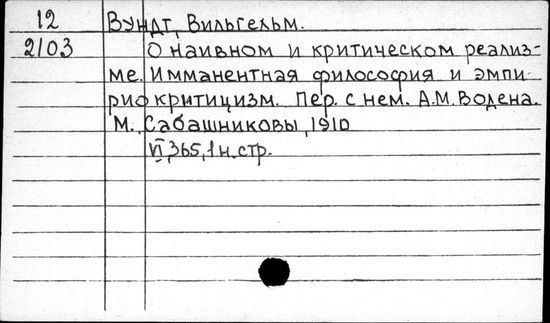 12 Вундт, Вильгельм.
2103 О наивном и критическом реализ-
ме. Имманентная философия и эмпи
риокритицизм. Пер. с нем. А.М. Водена.
М., Сабашниковы, 1910
VI, 365, 1 н. стр.